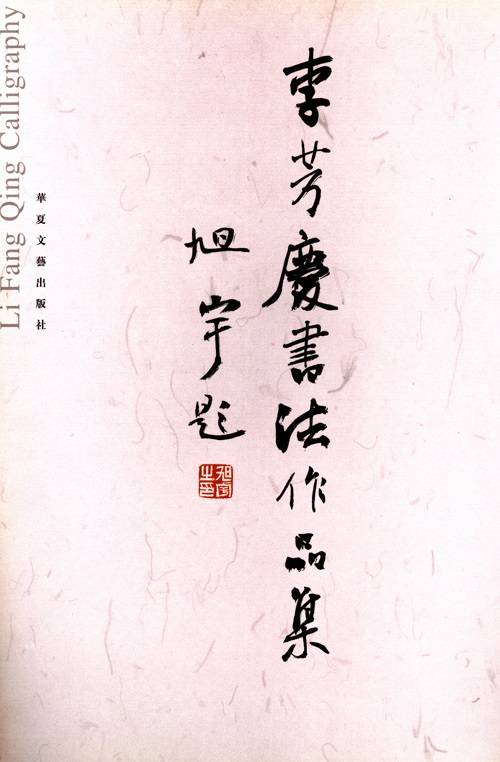 李芳慶書法作品集
旭宇題
旭宇之印
華夏文藝出版社
Li Fang Qing Calligraphy